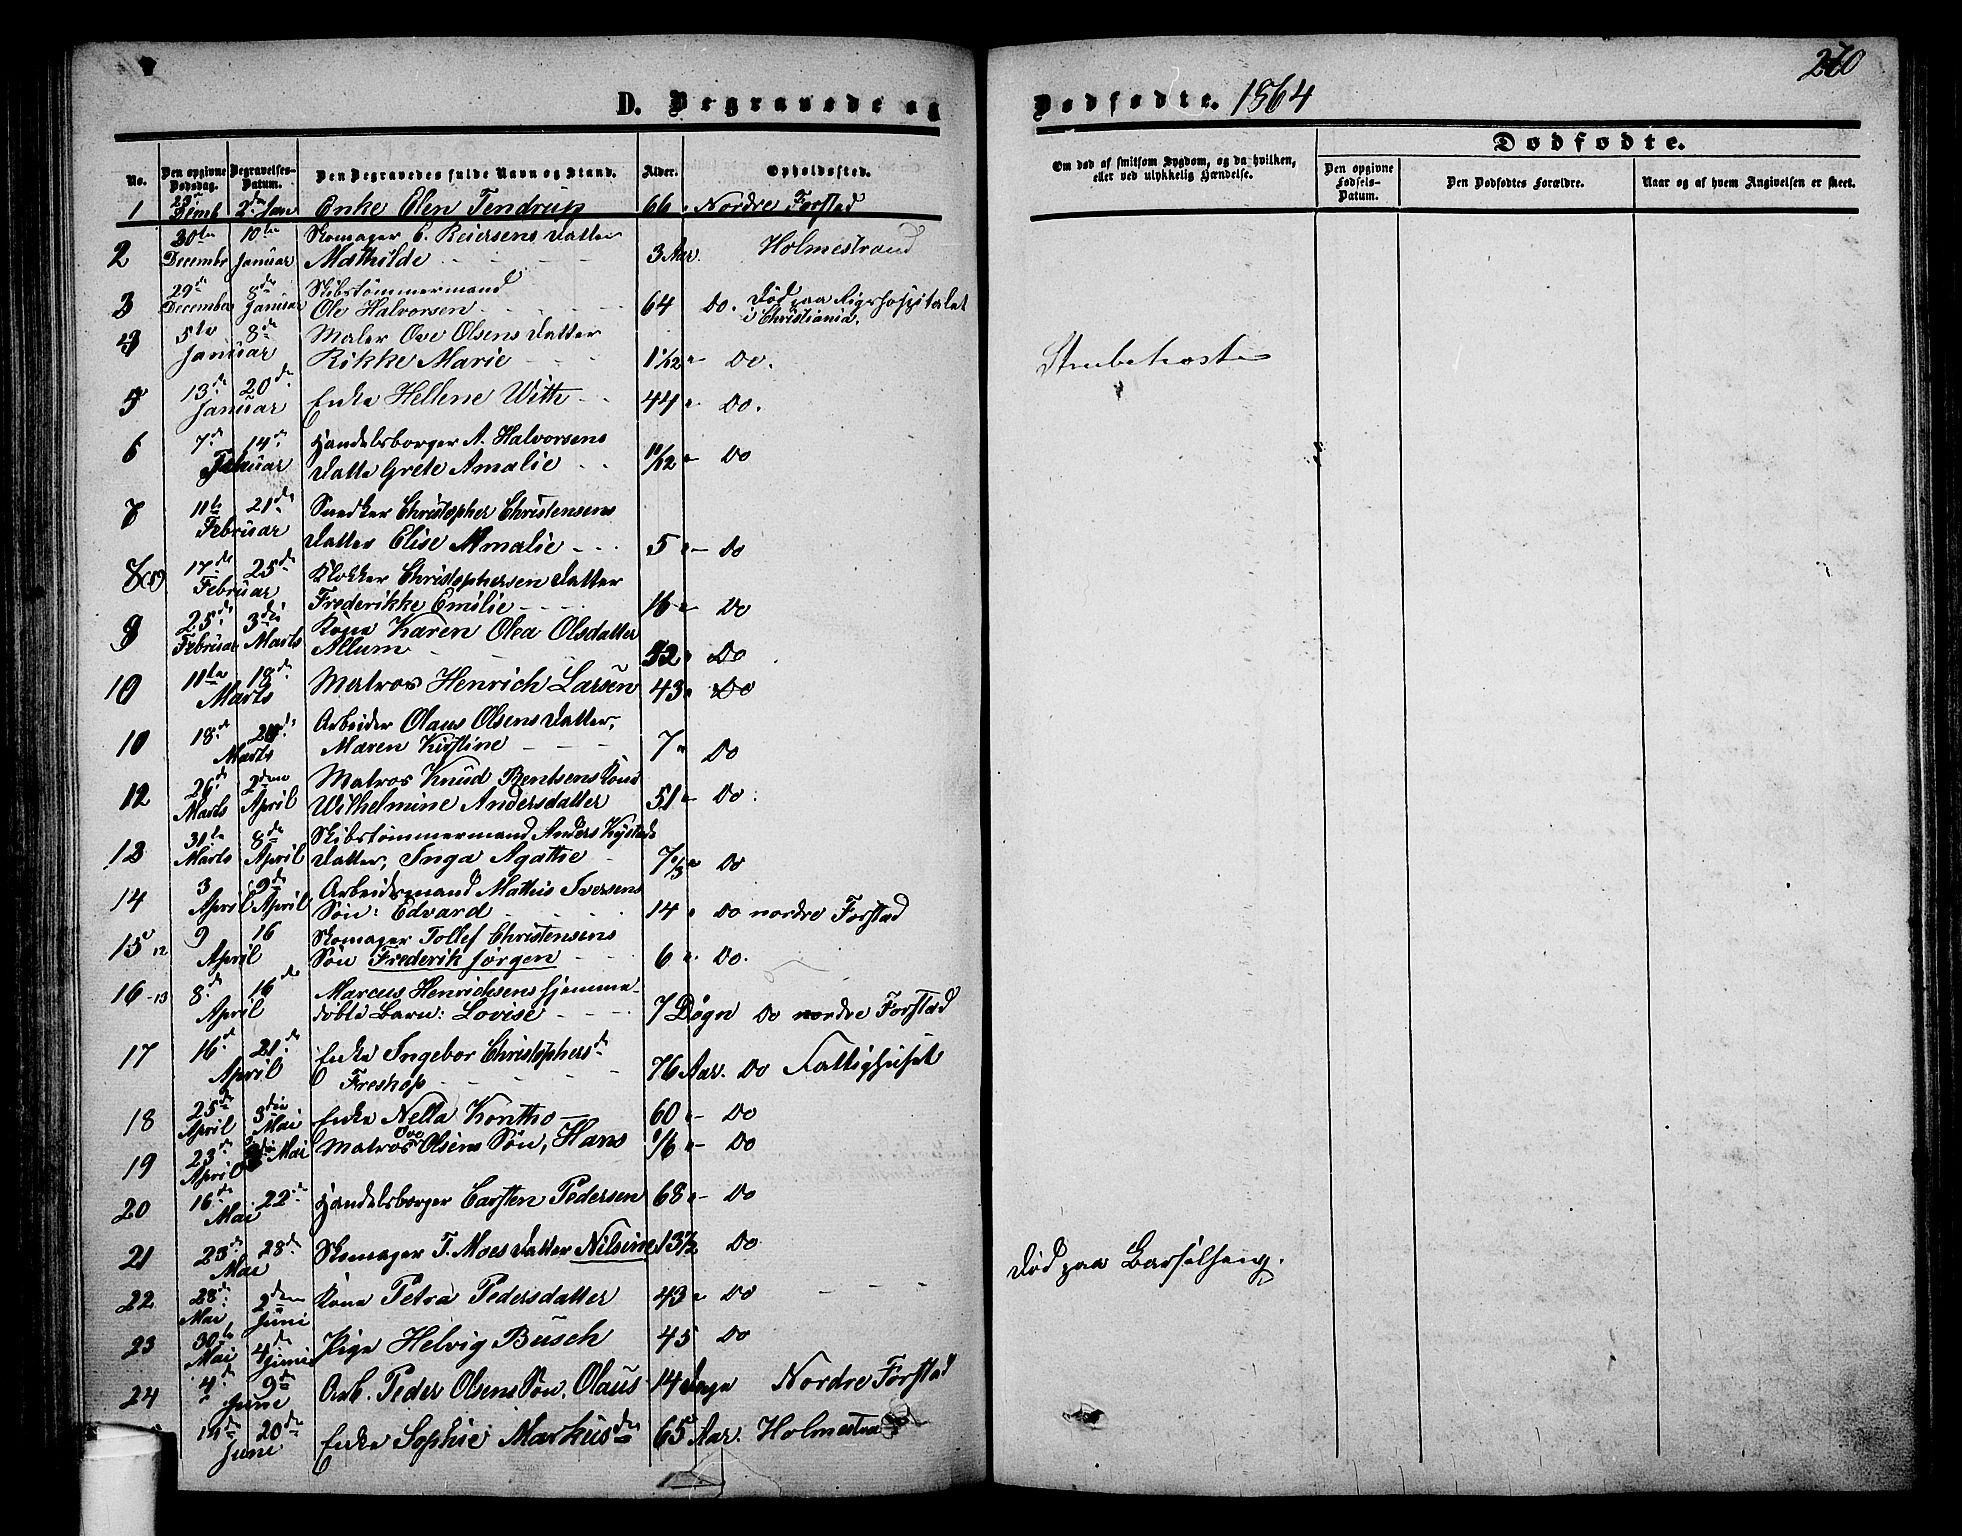 270
D. Begravede og
Dødfødte. 1864
No.
Den opgivne Dødsdag.
Begravelses-Datum.
Den Begravedes fulde Navn og Stand.
Alder.
Opholdssted.
Om død af smitsom Sygdom, og da hvilken, eller ved ulykkelig Hændelse.
Dødfødte.
Den opgivne Fødsels-Datum.
Den Dødfødtes Forældre.
Naar og af hvem Angivelsen er skeet.
1 29 Decemb 2den Jan Enke Elen Tendrup 66 " Nordre Forstad
2 30te Decembr 10de Januar Skomager E. Reiersens Datter
Mathilde 3 Aar. Holmestrand
3 29de December 8de Januar Skibstømmermand
Ole Halvorsen 64 Do. Død paa Rigshospitalet
i Christiania.
4 5te 8de Januar Maler Ove Olsens Datter
Rikke Marie 1 1/12 " Do.
Strubehoste
5 13de 20de Januar Enke Hellene With 44 " Do.
6 7de 14de Februar Handelsborger A. Halvorsens
Datte Grete Amalie 11/12 " Do
7 11te 21de Februar Snedker Christopher Christensens
Datter Elise Amalie 5 " Do
8 17de 25de Februar Klokker Christophersen Datter
Frederikke Emilie 16 " Do
9 25de Februar 3die Marts Kone Karen Olea Olsdatter
Allum 52 " Do
10 11te 18de Marts Matros Henrich Larsen 43 " Do
10 18de Marts Arbeider Olaus Olsens Datter,
Maren Kirstine 7 " Do
12 26de Marts 2den April Matros Knud Bentsens Kone
Wilhelmine Andersdatter 51 " Do
13 31te Marts 8de April Skibstømmermand Anders
Datter, Inga Agathe 7 1/3 " Do
14 3 April 9de April Arbeidsmand Mathis Iversens
Søn: Edvard 14 " Do nordre Forstad
15 12 9 16 April Skomager Tollef Christensens
Søn Frederik Jørgen 6 " Do.
16 - 13 8de 16de April Marcus Henrichsens hjemme-
døbte Barn: Lovise 7 Døgn Do nordre Forstad
17 16de 21de April Enke Ingebor Christophersd
Freshop 76 Aar. Do Fattighuset
18 25de April 3die Mai Enke Nella Kontho 60 " Do
19 23de April Mai Matros Ove Olsens Søn, Hans 1/6 " Do
20 16de 22de Mai Handelsborger Carsten Pedersen 68 " Do
21 23de 28de Mai Skomager T. Moes Datter Nilsine 13 1/2 Do
22 28de Mai 2den Juni Kone Petra Pedersdatter 43 " Do
Død paa Barselseng.
23 30te Mai 4de Juni Pige Helvig Busch 45 Do
24 4de 9de June Arb. Peder Olsens Søn, Olaus 14 Dage Nordre Forstad
14de 20de June Enke Sophie Markusdr 65 Aar. Holmestrand